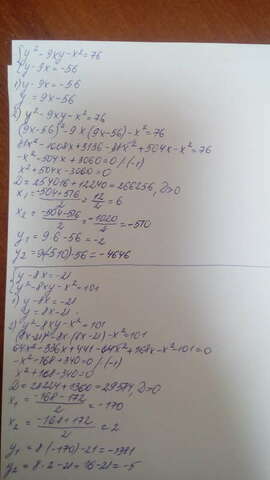 {y² - 9xy - x² = 76
{y - 9x = -56
1) y - 9x = -56
y = 9x - 56
2) y² - 9xy - x² = 76
(9x-56)² - 9x(9x-56) - x² = 76
81x² - 1008x + 3136 - 81x² + 504x - x² = 76
-x² - 504x + 3060 = 0 /·(-1)
x² + 504x - 3060 = 0
D = 254016 + 12240 = 266256, D>0
x₁ = (-504+516)/2 = 12/2 = 6
x₂ = (-504-516)/2 = -1020/2 = -510
y₁ = 9·6 - 56 = -2
y₂ = 9·(-510) - 56 = -4646
{y - 8x = -21
{y² - 8xy - x² = 101
1) y - 8x = -21
y = 8x - 21
2) y² - 8xy - x² = 101
(8x-21)² - 8x(8x-21) - x² = 101
64x² - 336x + 441 - 64x² + 168x - x² - 101 = 0
-x² - 168x + 340 = 0 /·(-1)
x² + 168 - 340 = 0
D = 28224 + 1360 = 29584, D>0
x₁ = (-168-172)/2 = -170
x₂ = (-168+172)/2 = 2
y₁ = 8·(-170) - 21 = -1381
y₂ = 8·2 - 21 = 16 - 21 = -5